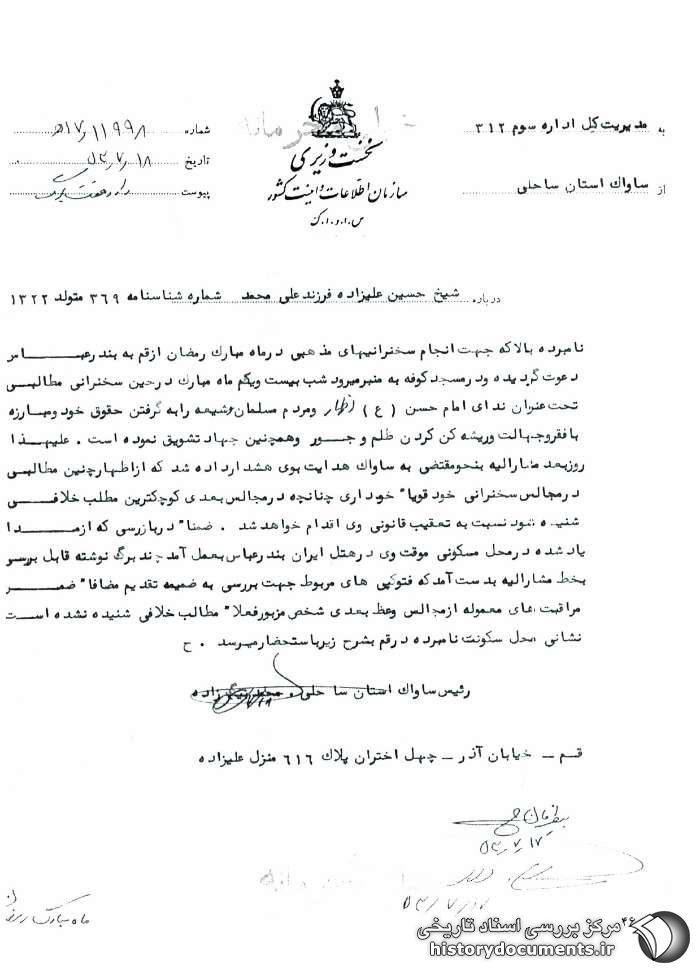 به مدیریت کل اداره سوم ۳۱۲
از ساواك استان ساحلی
نخست وزیری
سازمان اطلاعات و امنیت کشور
س.ا.و.ا.ك
شماره ۱۱۹۹۸/۱۷ه‍
تاریخ ۵۳/۷/۱۸
پیوست دارد
درباره شیخ حسین علیزاده فرزند علی محمد شماره شناسنامه ۳۶۹ متولد ۱۳۲۲
نامبرده بالا که جهت انجام سخنرانیهای مذهبی درماه مبارك رمضان ازقم به بندرعباس
دعوت گردیده ودر مسجد کوفه به منبر میرود شب بیست ویکم ماه مبارك درحین سخنرانی مطالبی
تحت عنوان ندای امام حسن ( ع ) اظهار ومردم مسلمان وشیعه را به گرفتن حقوق خود ومبارزه
با فقر وجهالت وریشه کن کردن ظلم و جور وهمچنین جهاد تشویق نموده است . علیهذا
روزبعد مشارالیه بنحو مقتضی به ساواك هدایت بوی هشدار داده شد که ازاظهار چنین مطالبی
درمجالس سخنرانی خود قویا" خود داری چنانچه درمجالس بعدی کوچکترین مطلب خلافی
شنیده شود نسبت به تعقیب قانونی وی اقدام خواهد شد . ضمنا" دربازرسی که ازمدا
یاد شده درمحل مسکونی موقت وی درهتل ایران بندرعباس بعمل آمد چند برگ نوشته قابل بررسی
بخط مشارالیه بدست آمد که فتوکپی های مربوط جهت بررسی به ضمیمه تقدیم مضافا" ضمن
مراقبت های معموله ازمجالس وعظ بعدی شخص مزبور فعلا" مطالب خلافی شنیده نشده است
نشانی محل سکونت نامبرده درقم بشرح زیر باستحضار میرسد . ح
رئیس ساواك استان ساحلی
قم - خیابان آذر - چهل اختران پلاك ۶۱۶ منزل علیزاده
۵۳/۷/۱۷
ماه مبارك
۴۶
مرکز بررسی اسناد تاریخی
historydocuments.ir